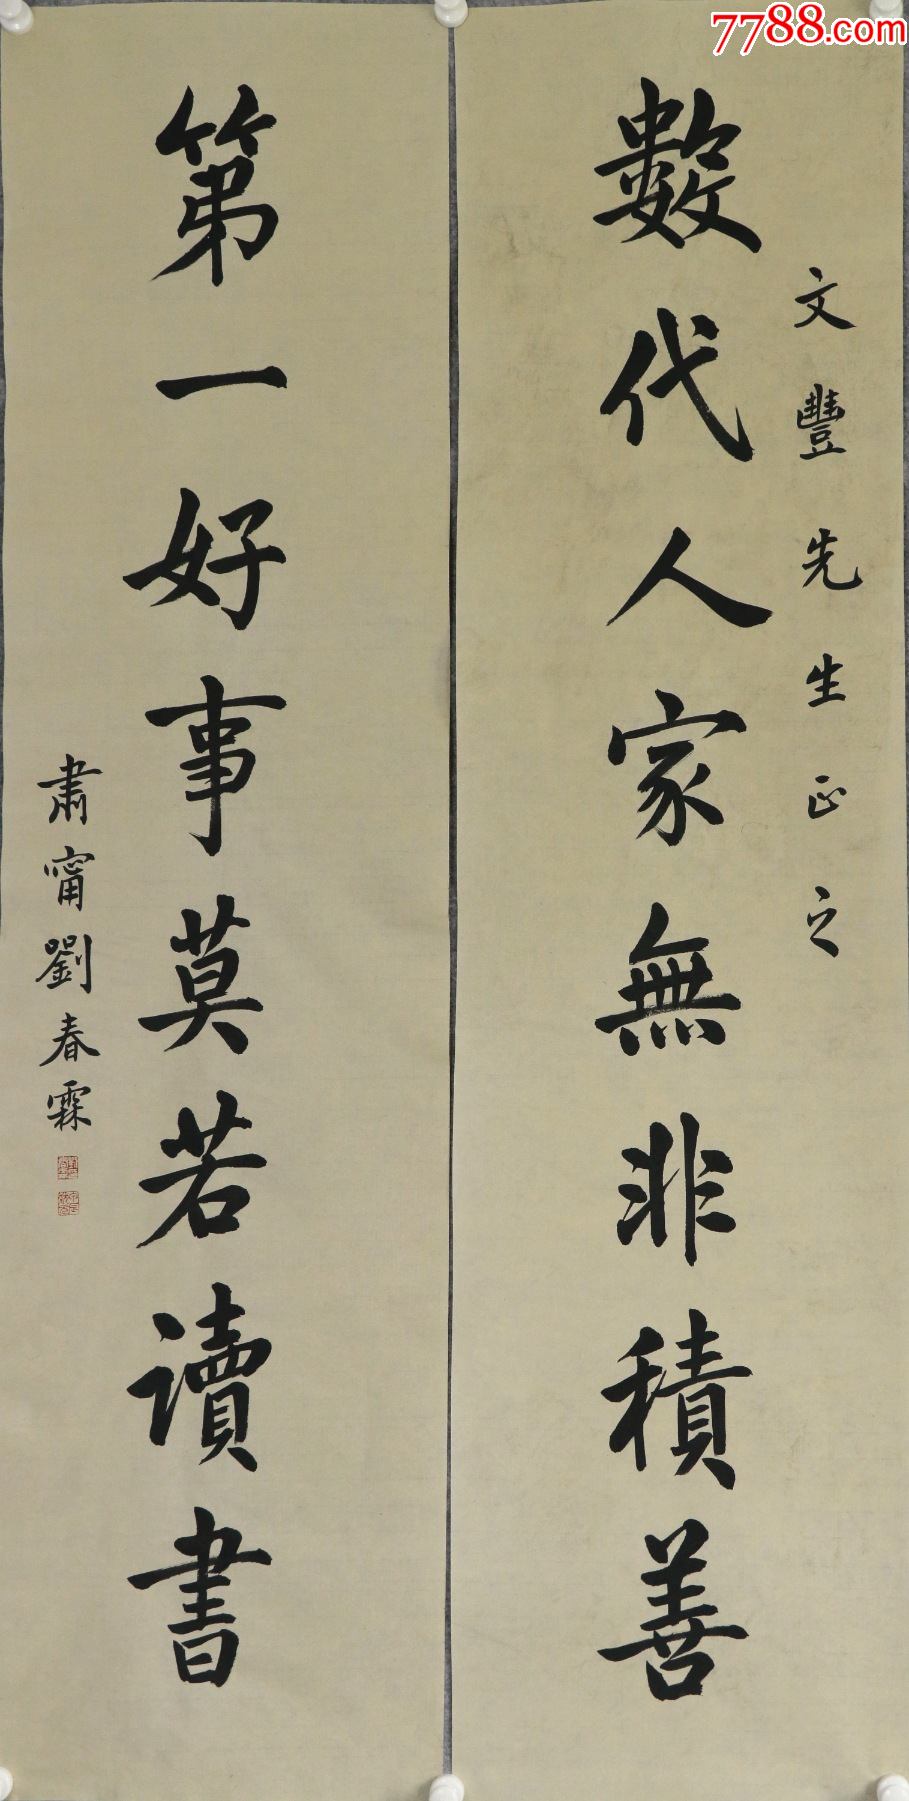 7788.com
文豐先生正之
數代人家無非積善
第一好事莫若讀書
肅甯劉春霖